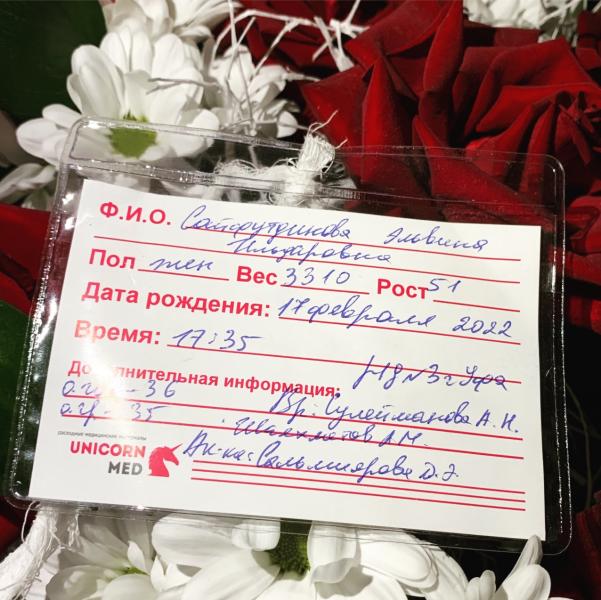 Ф.И.О. Сайфутдинова Эльвина
Ильдаровна
Пол жен Вес 3310 Рост 51
Дата рождения: 17 февраля 2022
Время: 17:35
Дополнительная информация: РД №3 г Уфа
о.гр - 35 Вр: Сулейманова А. Н.
Шаяхметов А М.
расходные медицинские материалы
UNICORN
MED
Ак-ка: